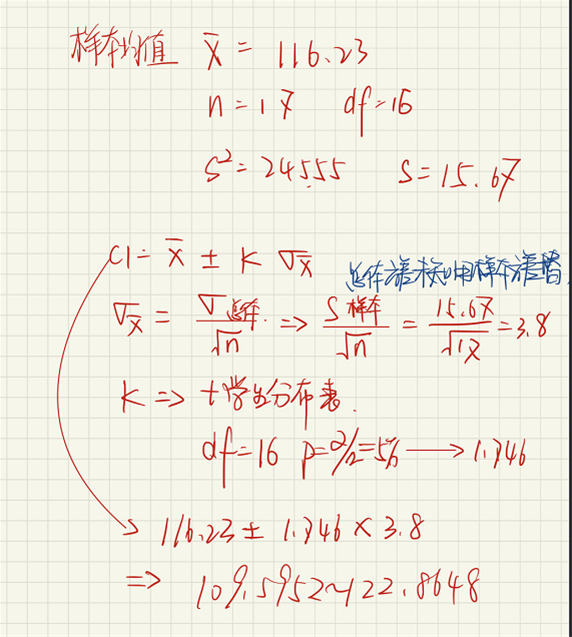 样本均值 x̄ = 116.23
n = 17 df = 16
S² = 245.55 S = 15.67
CI = x̄ ± K σx̄
总体方差未知用样本方差替
σx̄ = σ总体/√n => S样本/√n = 15.67/√17 = 3.8
K => t学生分布表.
df = 16 p = α/2 = 5% → 1.746
116.23 ± 1.746 × 3.8
=> 109.5952~122.8648